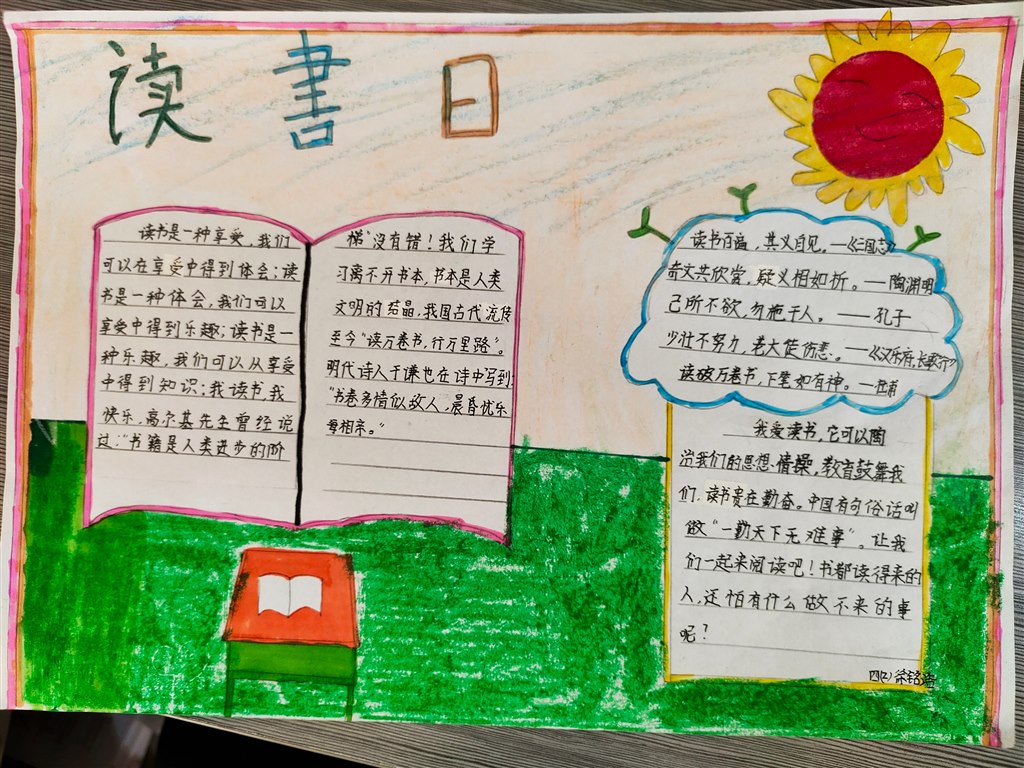 读書日
读书是一种享受，我们
可以在享受中得到体会；读
书是一种体会，我们可以
享受中得到乐趣；读书是一
种乐趣，我们可以从享受
中得到知识；我读书，我
快乐，高尔基先生曾经说
过：“书籍是人类进步的阶
梯”没有错！我们学
习离不开书本，书本是人类
文明的结晶，我国古代流传
至今“读万卷书，行万里路”。
明代诗人于谦也在诗中写到：
“书卷多情似故人，晨昏忧乐
每相亲。”
读书百遍，其义自见。—《三国志》
奇文共欣赏，疑义相如析。—陶渊明
己所不欲，勿施于人。——孔子
少壮不努力，老大徒伤悲。—《汉乐府·长歌行》
读破万卷书，下笔如有神。—杜甫
我爱读书，它可以陶
冶我们的思想、情操，教育鼓舞我
们，读书贵在勤奋。中国有句俗话叫
做“一勤天下无难事”。让我
们一起来阅读吧！书都读得来的
人，还怕有什么做不来的事
呢？
四(2)